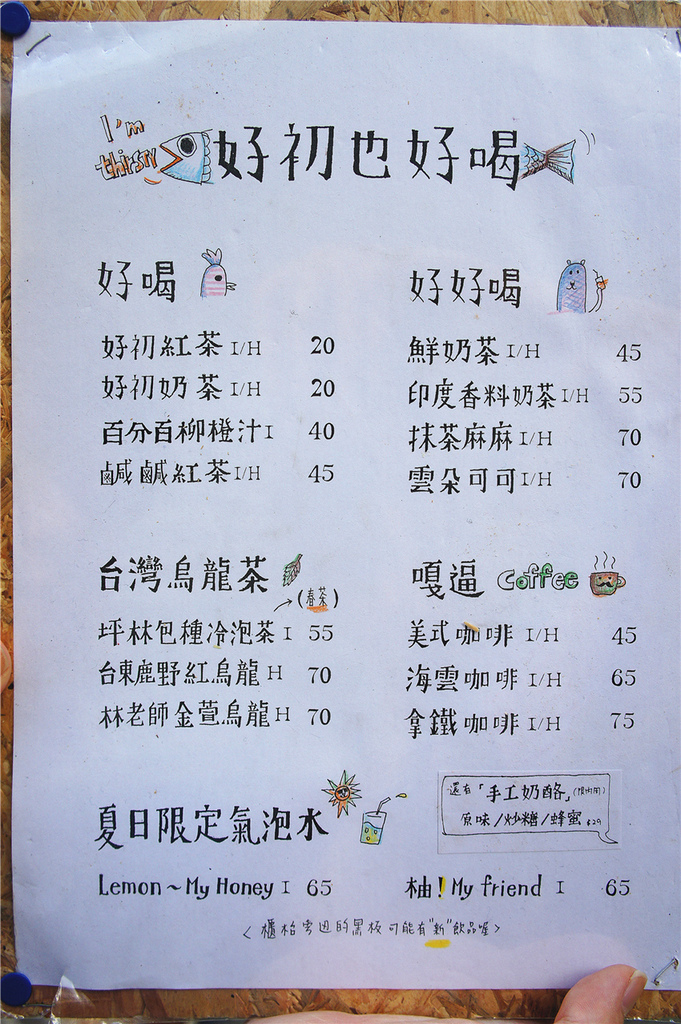 I'm thirsty
好初也好喝
好喝
好初紅茶 I/H 20
好初奶茶 I/H 20
百分百柳橙汁 I 40
鹹鹹紅茶 I/H 45
好好喝
鮮奶茶 I/H 45
印度香料奶茶 I/H 55
抹茶麻麻 I/H 70
雲朵可可 I/H 70
台灣烏龍茶
(春茶)
坪林包種冷泡茶 I 55
台東鹿野紅烏龍 H 70
林老師金萱烏龍 H 70
嘎逼 Coffee
美式咖啡 I/H 45
海雲咖啡 I/H 65
拿鐵咖啡 I/H 75
夏日限定氣泡水
Lemon~My Honey I 65
還有「手工奶酪」(限內用)
原味/炒糖/蜂蜜 $29
柚!My friend I 65
<櫃枱旁邊的黑板可能有"新"飲品喔>